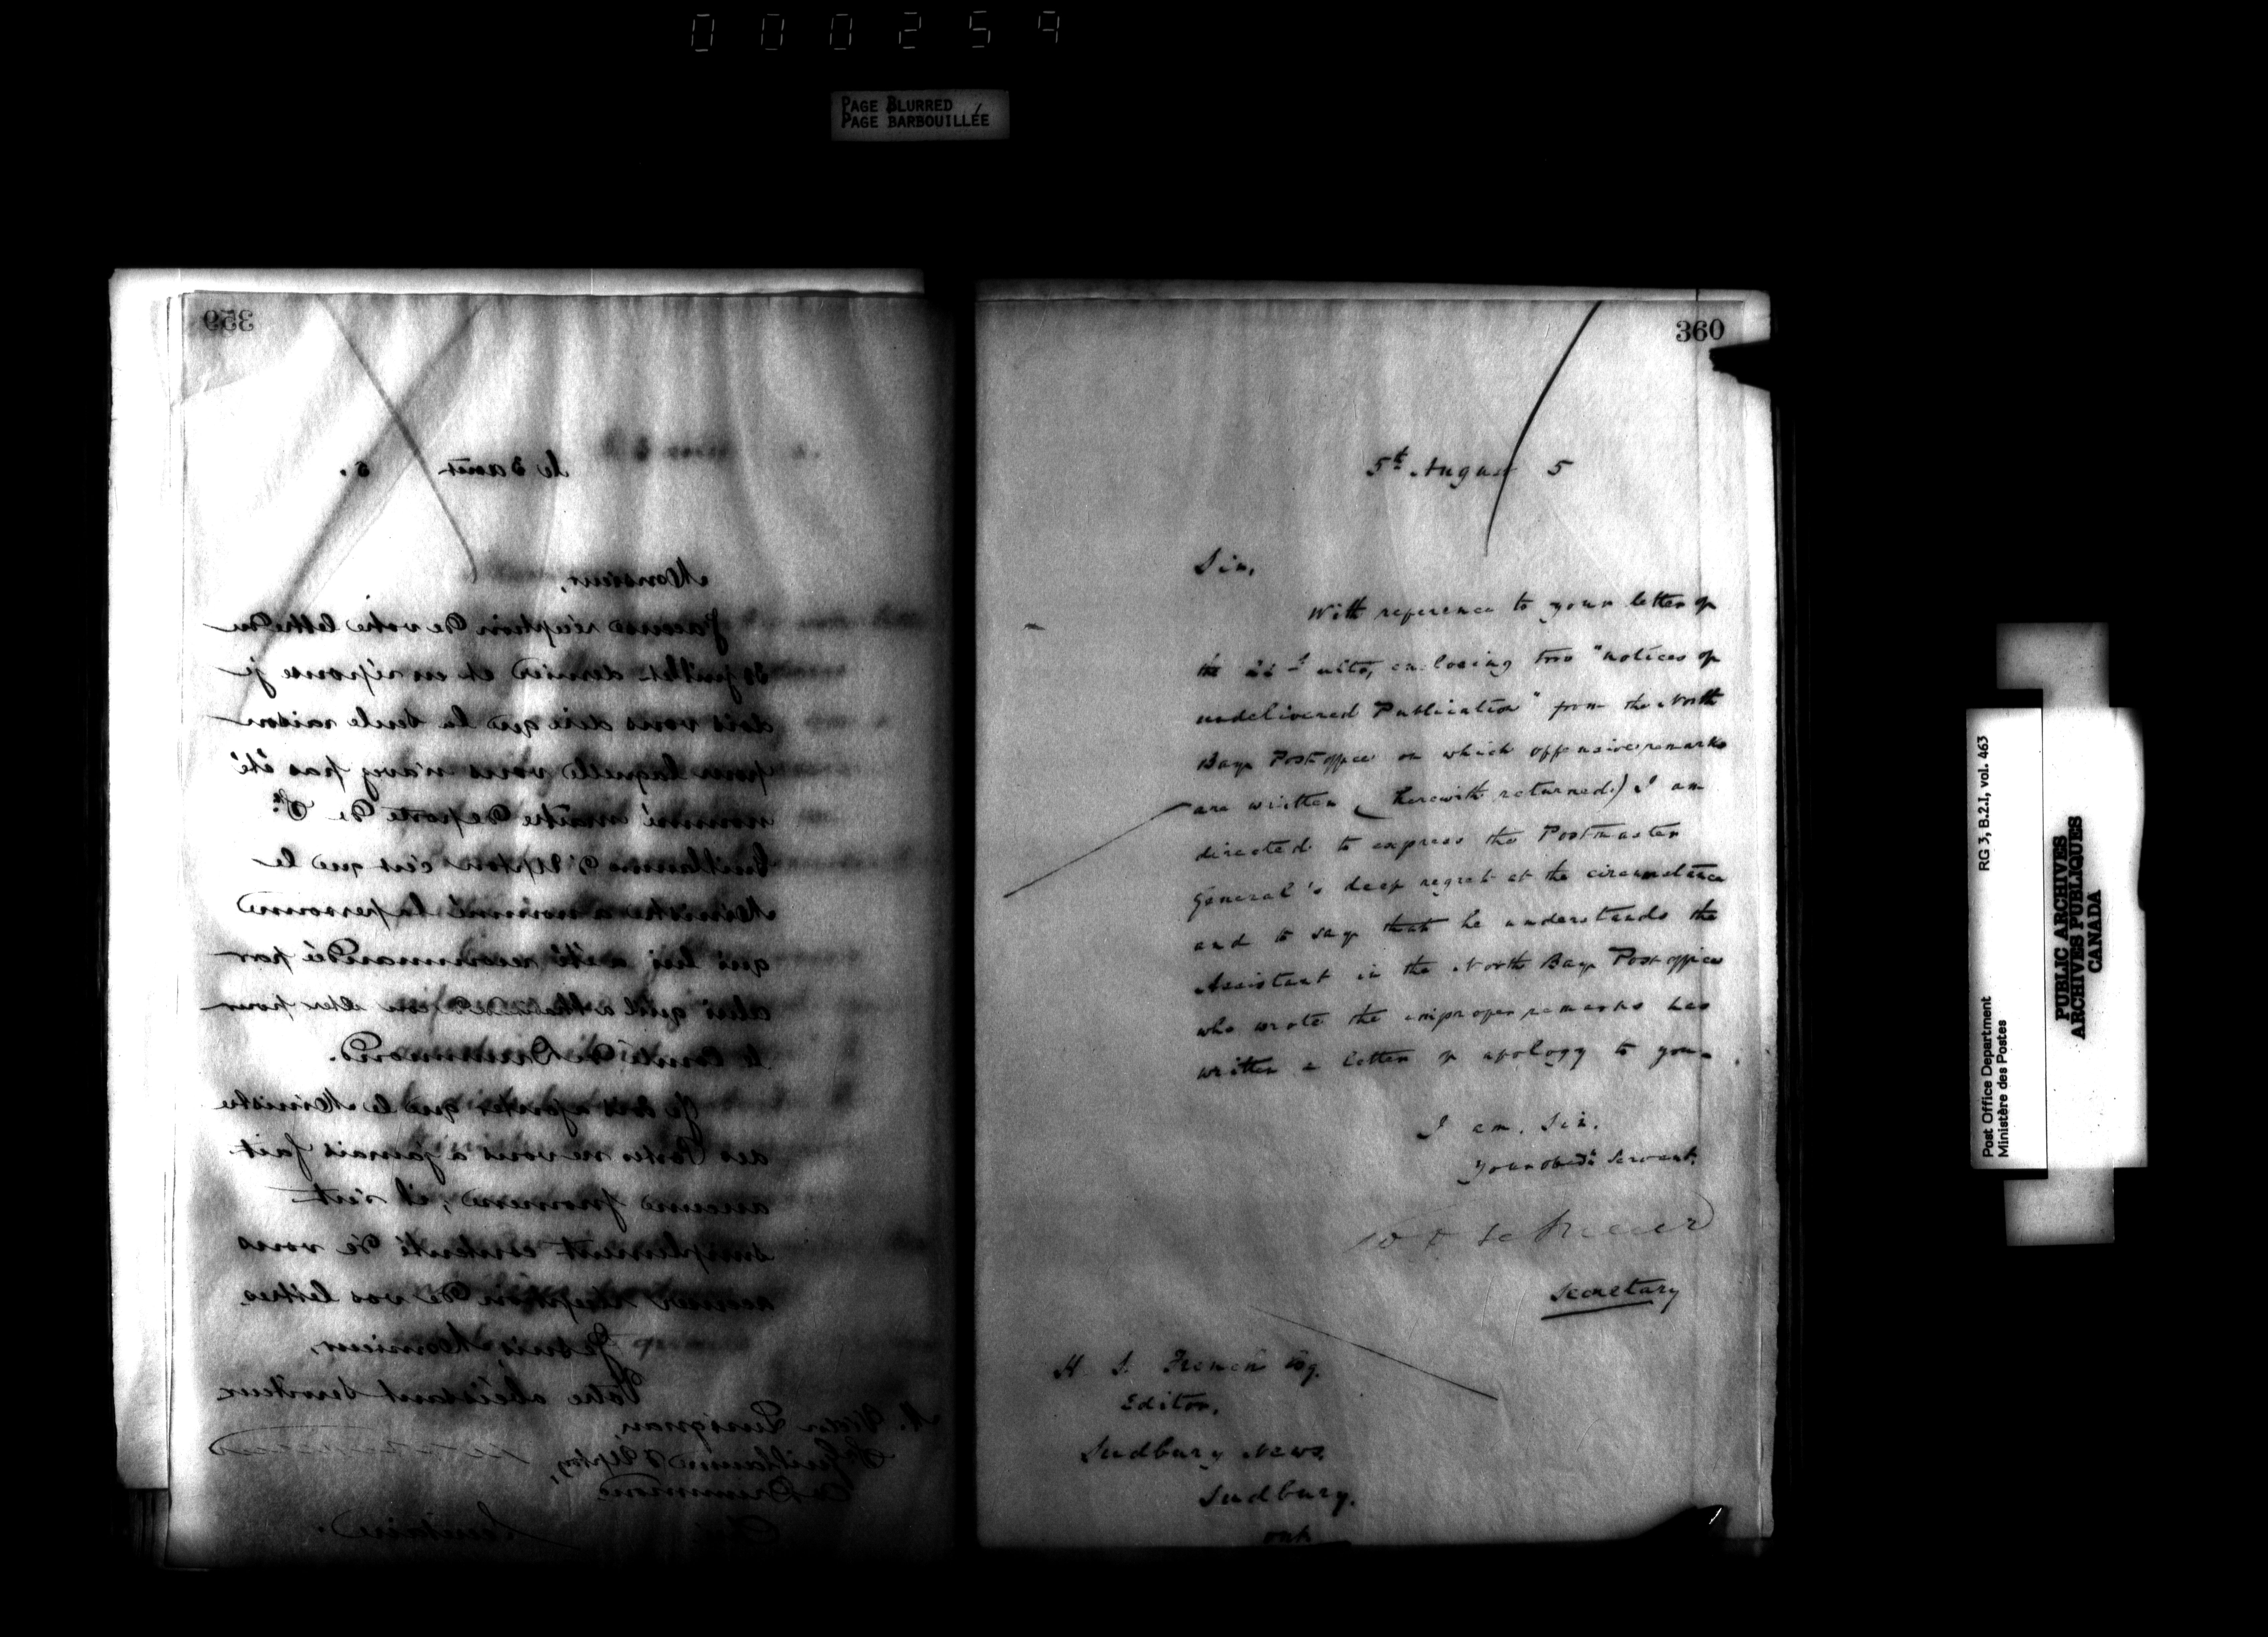 000259
PAGE BLURRED
PAGE BARBOUILLÉE
359
le 3 août 5.
Monsieur,
J'accuse réception de votre lettre du
30 juillet dernier et en réponse je
dois vous dire que la seule raison
pour laquelle vous n'avez pas été
nommé maître de poste de St.
Guillaume d'Upton c'est que le
Ministre a nommé la personne
qui lui a été recommandée par
celui qu'il a
le Comté de Drummond.
Je dois ajouter que le Ministre
des Postes ne vous a jamais fait
aucune promesse; il s'est
simplement contenté de vous
accuser réception de vos lettres.
Je suis, Monsieur,
Votre obéissant serviteur
M. Victor Lusignan,
St Guillaume d'Upton,
Co Drummond
Secrétaire.
360
5th August 5
Sir,
With reference to your letter of
the ulto, enclosing two "notices of
undelivered Publication" from the North
Bay Post office on which offensive remarks
are written (herewith returned.) I am
directed to express the Postmaster
General's deep regret at the circumstance
and to say that he understands the
Assistant in the North Bay Post office
who wrote the improper remarks has
written a letter of apology to you.
I am, Sir,
Your obedt servant,
Secretary
H. S. French Esq.
Editor,
Sudbury News,
Sudbury.
Ont
Post Office Department
Ministère des Postes
RG 3, B.2.1, vol. 463
PUBLIC ARCHIVES
ARCHIVES PUBLIQUES
CANADA